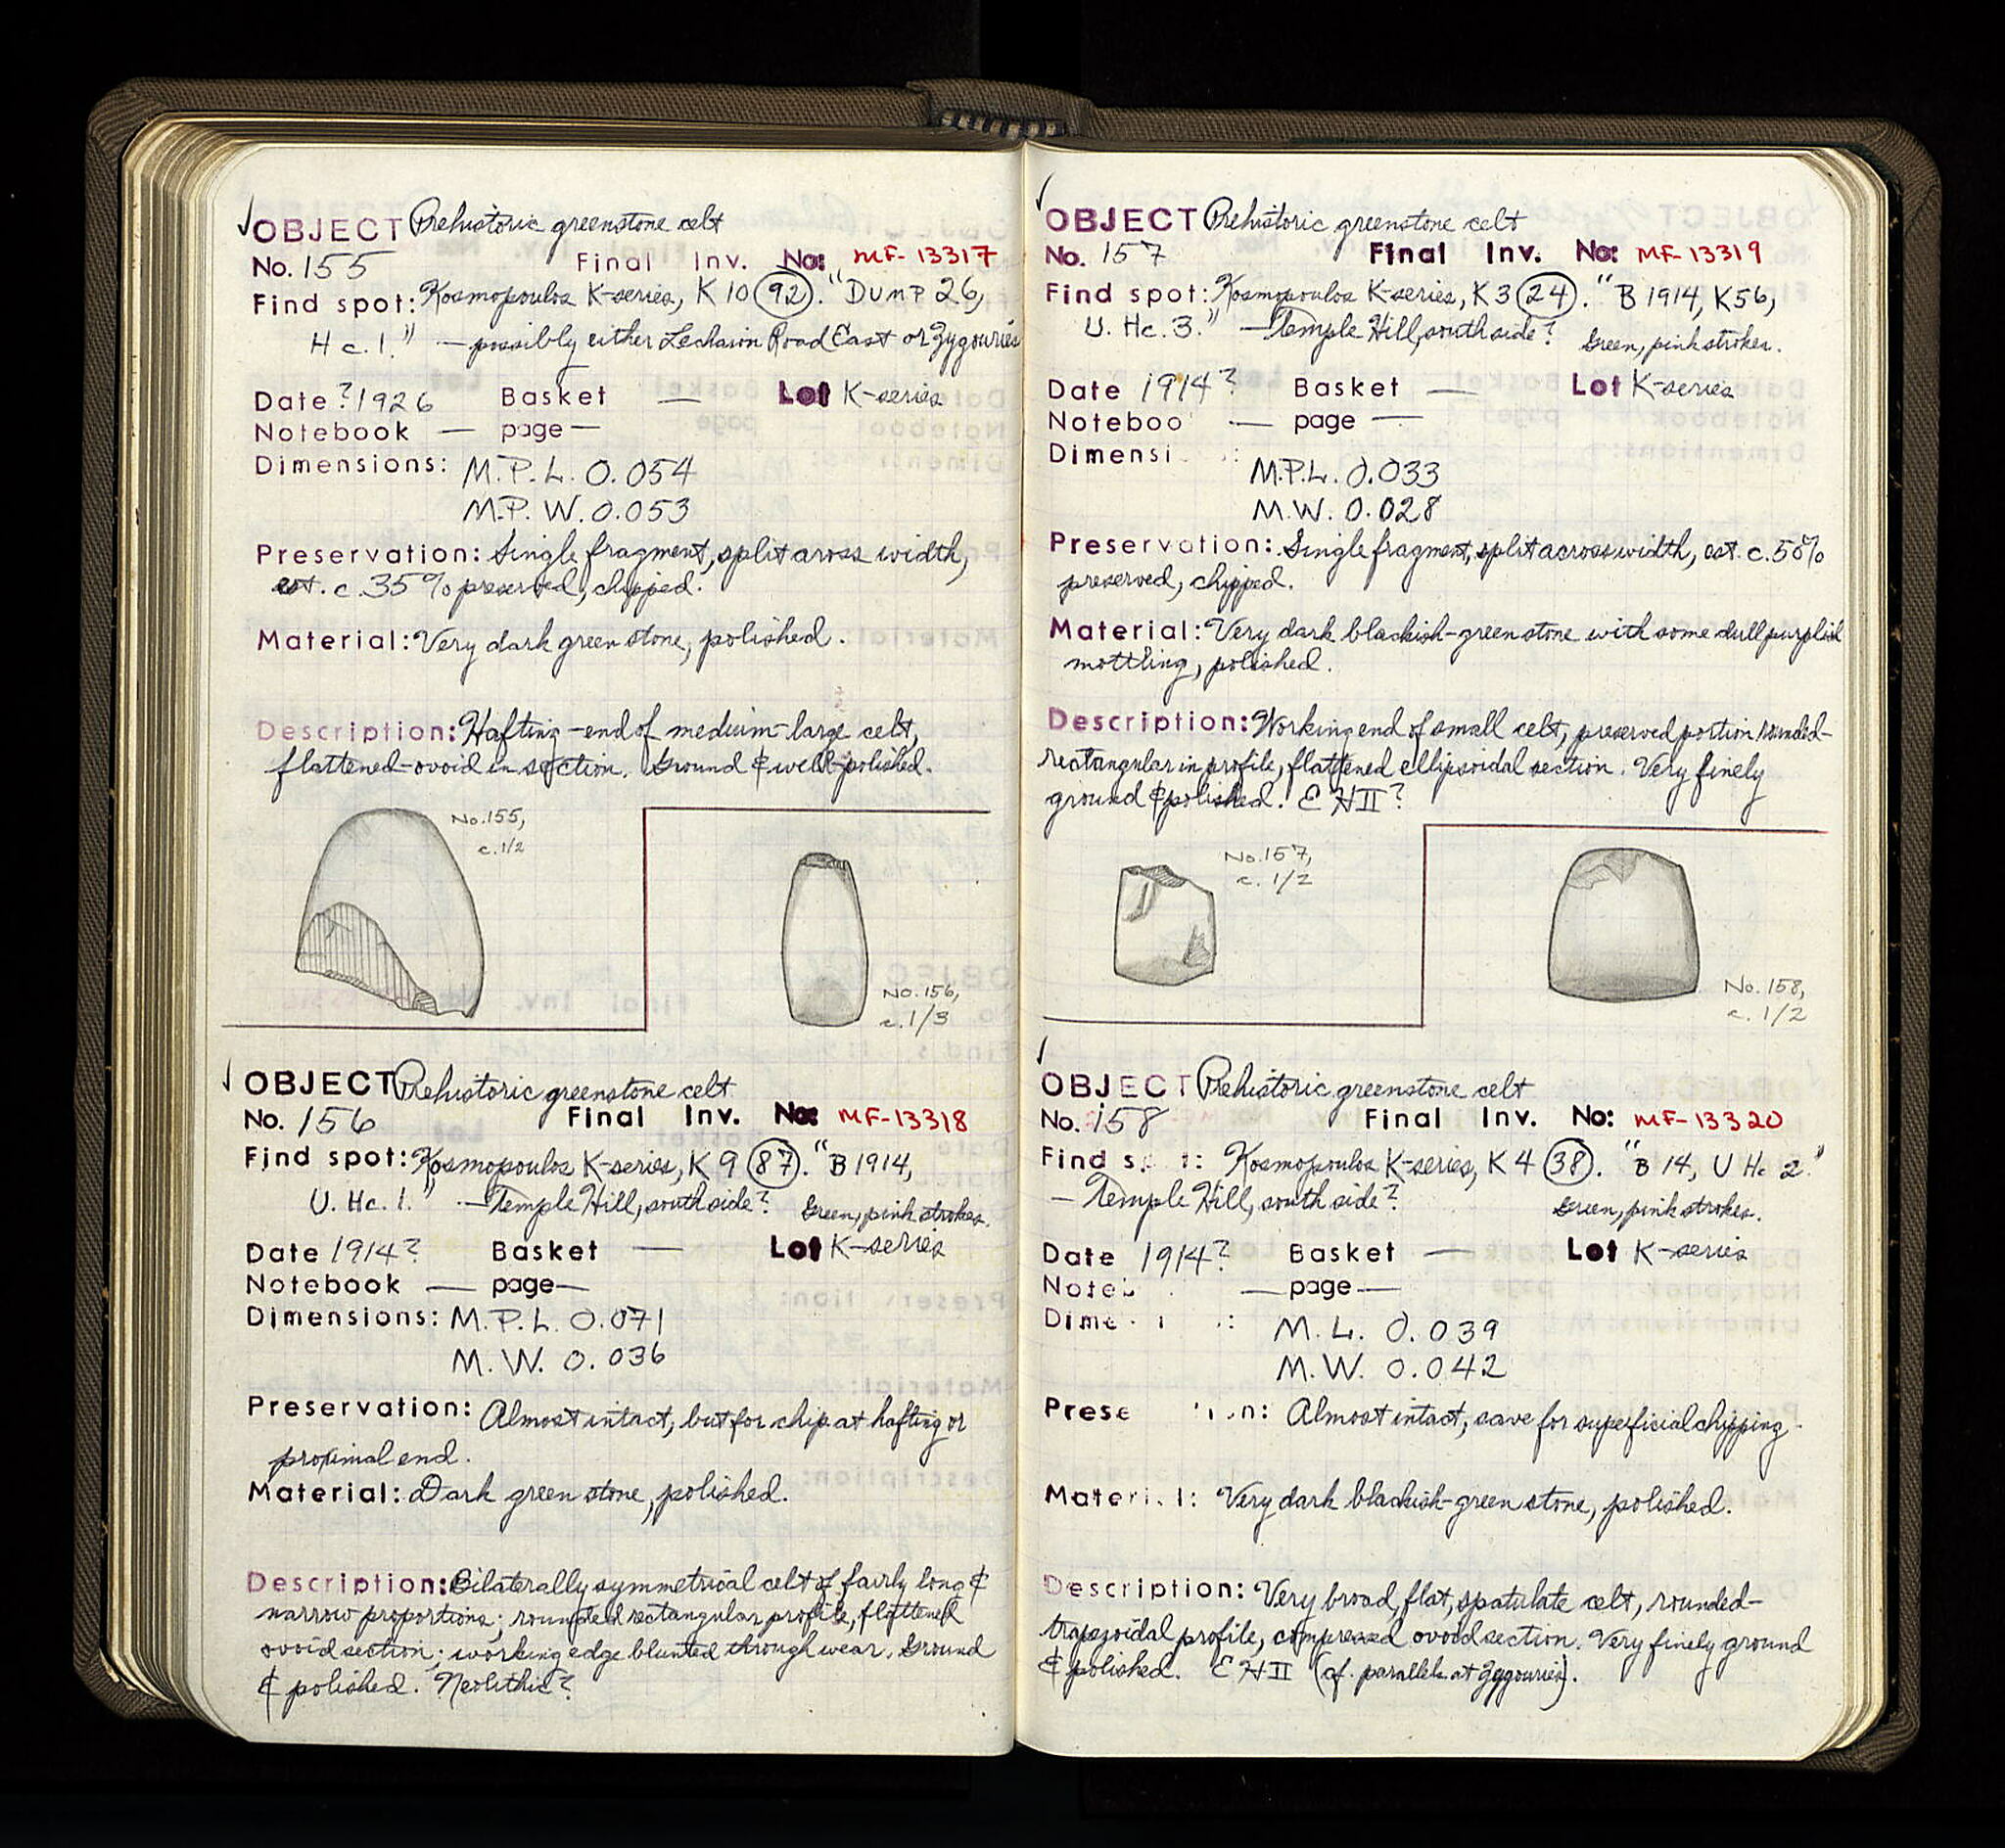 ✓ OBJECT Prehistoric greenstone celt
No. 155 Final Inv. No: MF-13317
Find spot: Kosmopoulos K-series, K 10 (92). "DUMP 26,
H c. 1." — possibly either Lechaion Road East or Zygouries
Date ? 1926 Basket — Lot K-series
Notebook — page —
Dimensions: M.P.L. 0.054
M.P.W. 0.053
Preservation: Single fragment, split aross width,
est. c. 35% preserved, chipped.
Material: Very dark green stone, polished.
Description: Hafting-end of medium-large celt,
flattened-ovoid in section. Ground & well-polished.
No. 155,
c. 1/2
No. 156,
c. 1/3
✓ OBJECT Prehistoric greenstone celt
No. 156 Final Inv. No: MF-13318
Find spot: Kosmopoulos K-series, K 9 (87). "B 1914,
U. Hc. 1." — Temple Hill, south side? Green, pink strokes.
Date 1914? Basket — Lot K-series
Notebook — page —
Dimensions: M.P.L. 0.071
M.W. 0.036
Preservation: Almost intact, but for chip at hafting or
proximal end.
Material: Dark green stone, polished.
Description: Bilaterally symmetrical celt of fairly long &
narrow proportions; rounded rectangular profile, flattened
ovoid section; working edge blunted through wear. Ground
& polished. Neolithic?
✓ OBJECT Prehistoric greenstone celt
No. 157 Final Inv. No: MF-13319
Find spot: Kosmopoulos K-series, K 3 (24). "B 1914, K56,
U. Hc. 3." — Temple Hill, south side? Green, pink strokes.
Date 1914? Basket — Lot K-series
Noteboo — page —
Dimensi : M.P.L. 0.033
M.W. 0.028
Preservation: Single fragment, split across width, est. c. 50%
preserved, chipped.
Material: Very dark blackish-green stone with some dull purplish
mottling, polished.
Description: Working end of small celt, preserved portion rounded-
rectangular in profile, flattened ellipsoidal section. Very finely
ground & polished. EH II?
No. 157,
c. 1/2
No. 158,
c. 1/2
✓ OBJECT Prehistoric greenstone celt
No. 158 Final Inv. No: MF-13320
Find s t: Kosmopoulos K-series, K 4 (38). "B 14, U Hc 2."
— Temple Hill, south side? Green, pink strokes.
Date 1914? Basket — Lot K-series
Note — page —
Dime : M.L. 0.039
M.W. 0.042
Prese n: Almost intact, save for superficial chipping.
Materi l: Very dark blackish-green stone, polished.
Description: Very broad, flat, spatulate celt, rounded-
trapezoidal profile, compressed ovoid section. Very finely ground
& polished. EH II (cf. parallels at Zygouries).